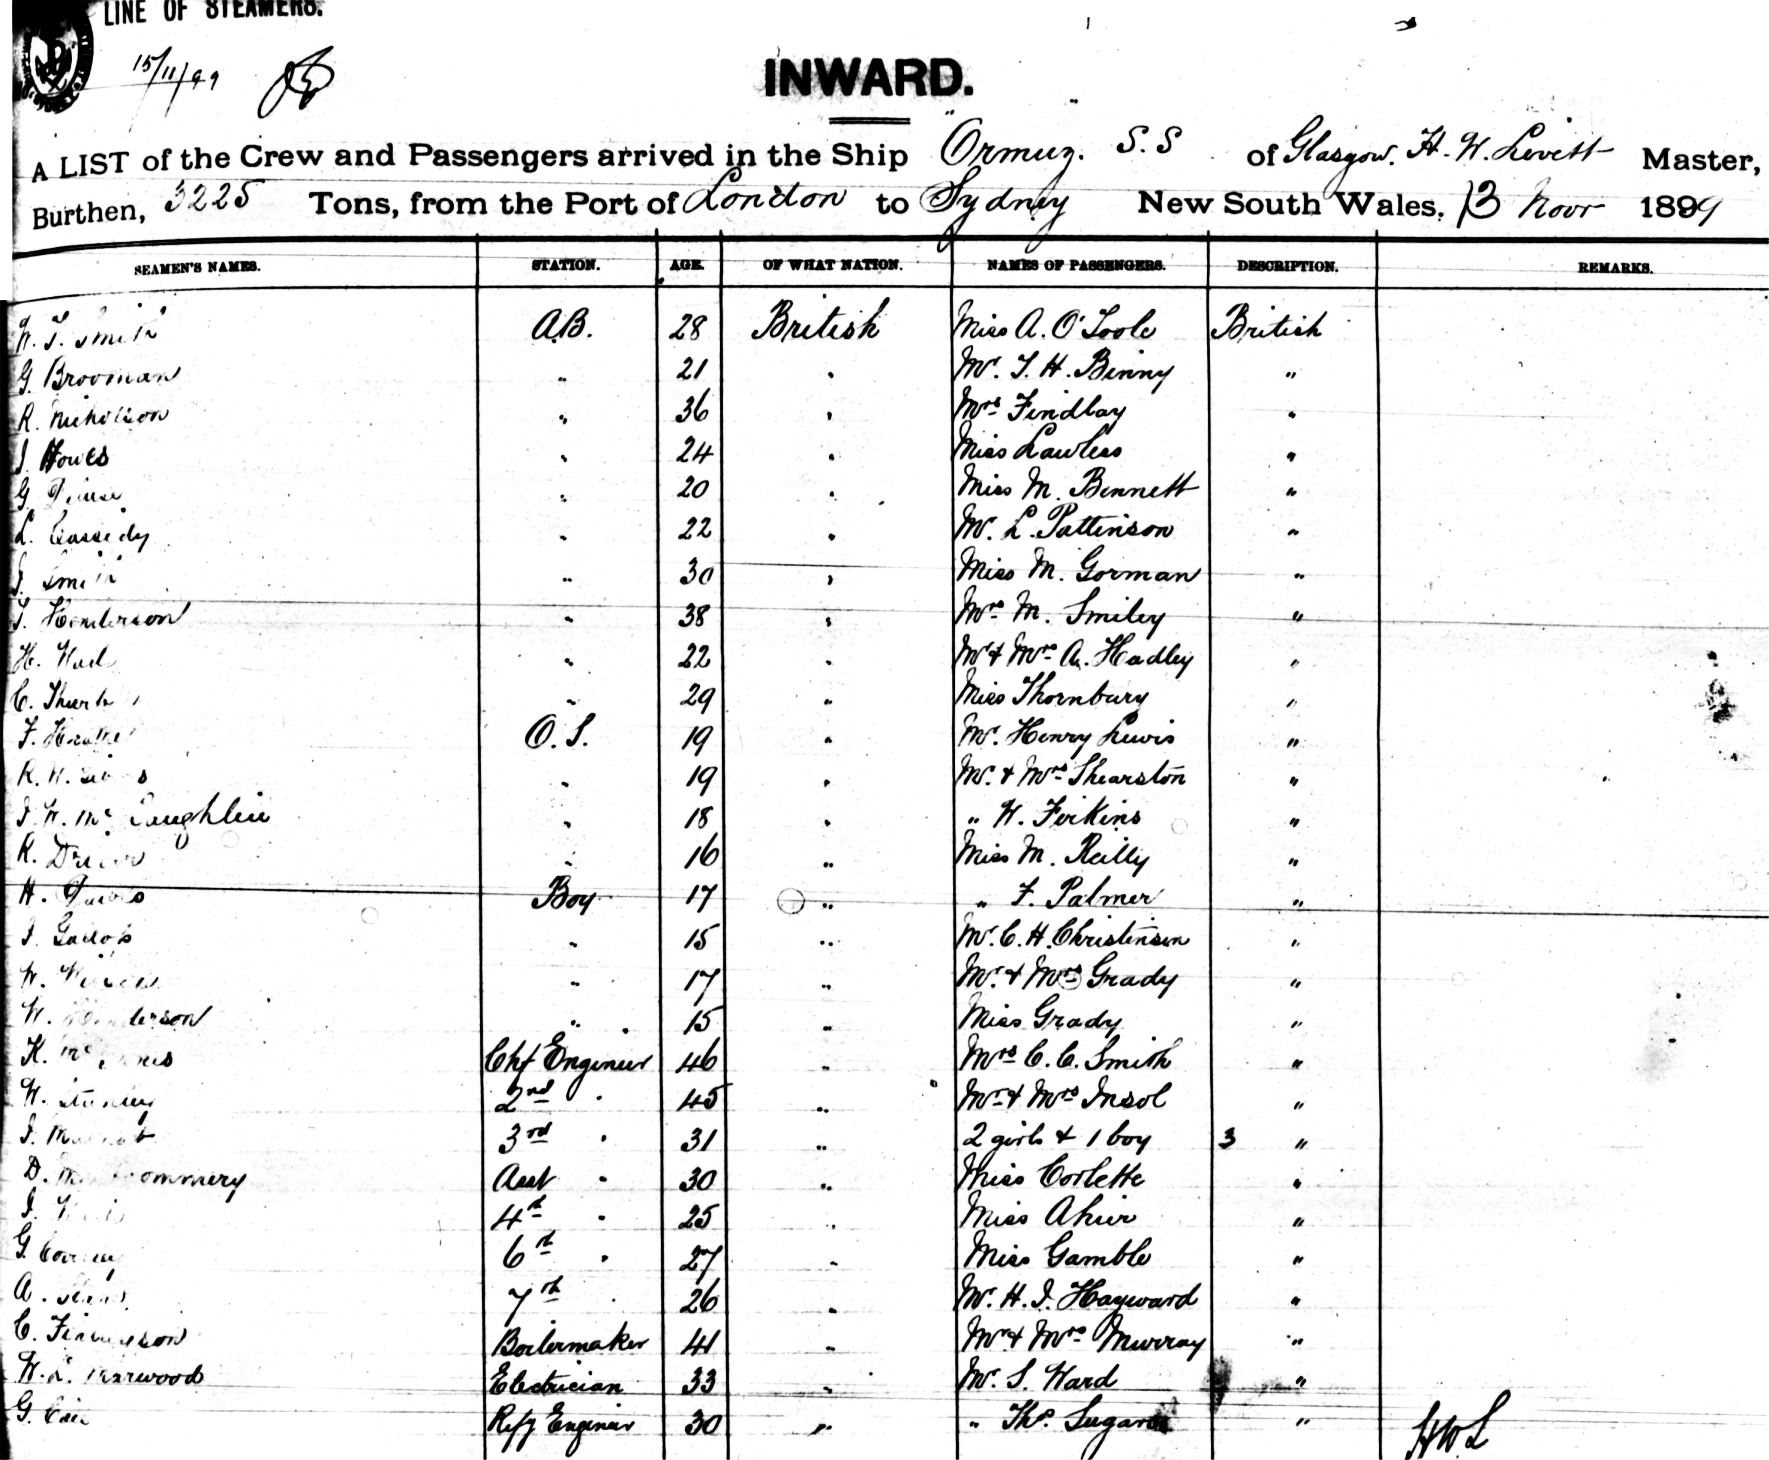 LINE OF STEAMERS.
15/11/99
INWARD.
A LIST of the Crew and Passengers arrived in the Ship Ormuz. S.S of Glasgow. H. W. Levett Master,
Burthen, 3225 Tons, from the Port of London to Sydney New South Wales, 13 Novr 1899
SEAMEN'S NAMES. STATION. AGE. OF WHAT NATION. NAMES OF PASSENGERS. DESCRIPTION. REMARKS.
W. T. Smith A.B. 28 British Miss A. O'Toole British
G. Brooman " 21 " Mr. T. H. Binny "
R. Nicholson " 36 " Mrs Findlay "
J. Howes " 24 " Miss Lawless "
G. 20 " Miss M. Bennett "
L. Cassidy " 22 " Mr. L. Pattinson "
J. Smith " 30 " Miss M. Gorman "
T. Henderson " 38 " Mrs M. Smiley "
H. " 22 " Mr & Mrs A. Hadley "
C. " 29 " Miss Thornbury "
F. O.S. 19 " Mr. Henry Lewis "
R. W. " 19 " Mr. & Mrs Shearston "
J. W. Mc Laughlin " 18 " " W. Firkins "
R. " 16 " Miss M. Reilly "
H. Boy 17 " " F. Palmer "
J. " 15 " Mr. C. H. Christensen "
W. " 17 " Mr. & Mrs Grady "
W. Henderson " 15 " Miss Grady "
K. Chf Engineer 46 " Mrs C. C. Smith "
W. 2nd " 45 " Mr & Mrs Insol "
J. 3rd " 31 " 2 girls & 1 boy 3 "
D. Montgommery Asst " 30 " Miss Corlette "
J. 4th " 25 " Miss Ahier "
G. 6th " 27 " Miss Gamble "
A. 7th " 26 " Mr. H. J. Hayward "
C. Boilermaker 41 " Mr & Mrs Murray "
W. L. Electrician 33 " Mr. S. Ward "
G. Refg Engineer 30 " " Thos. "
HWL